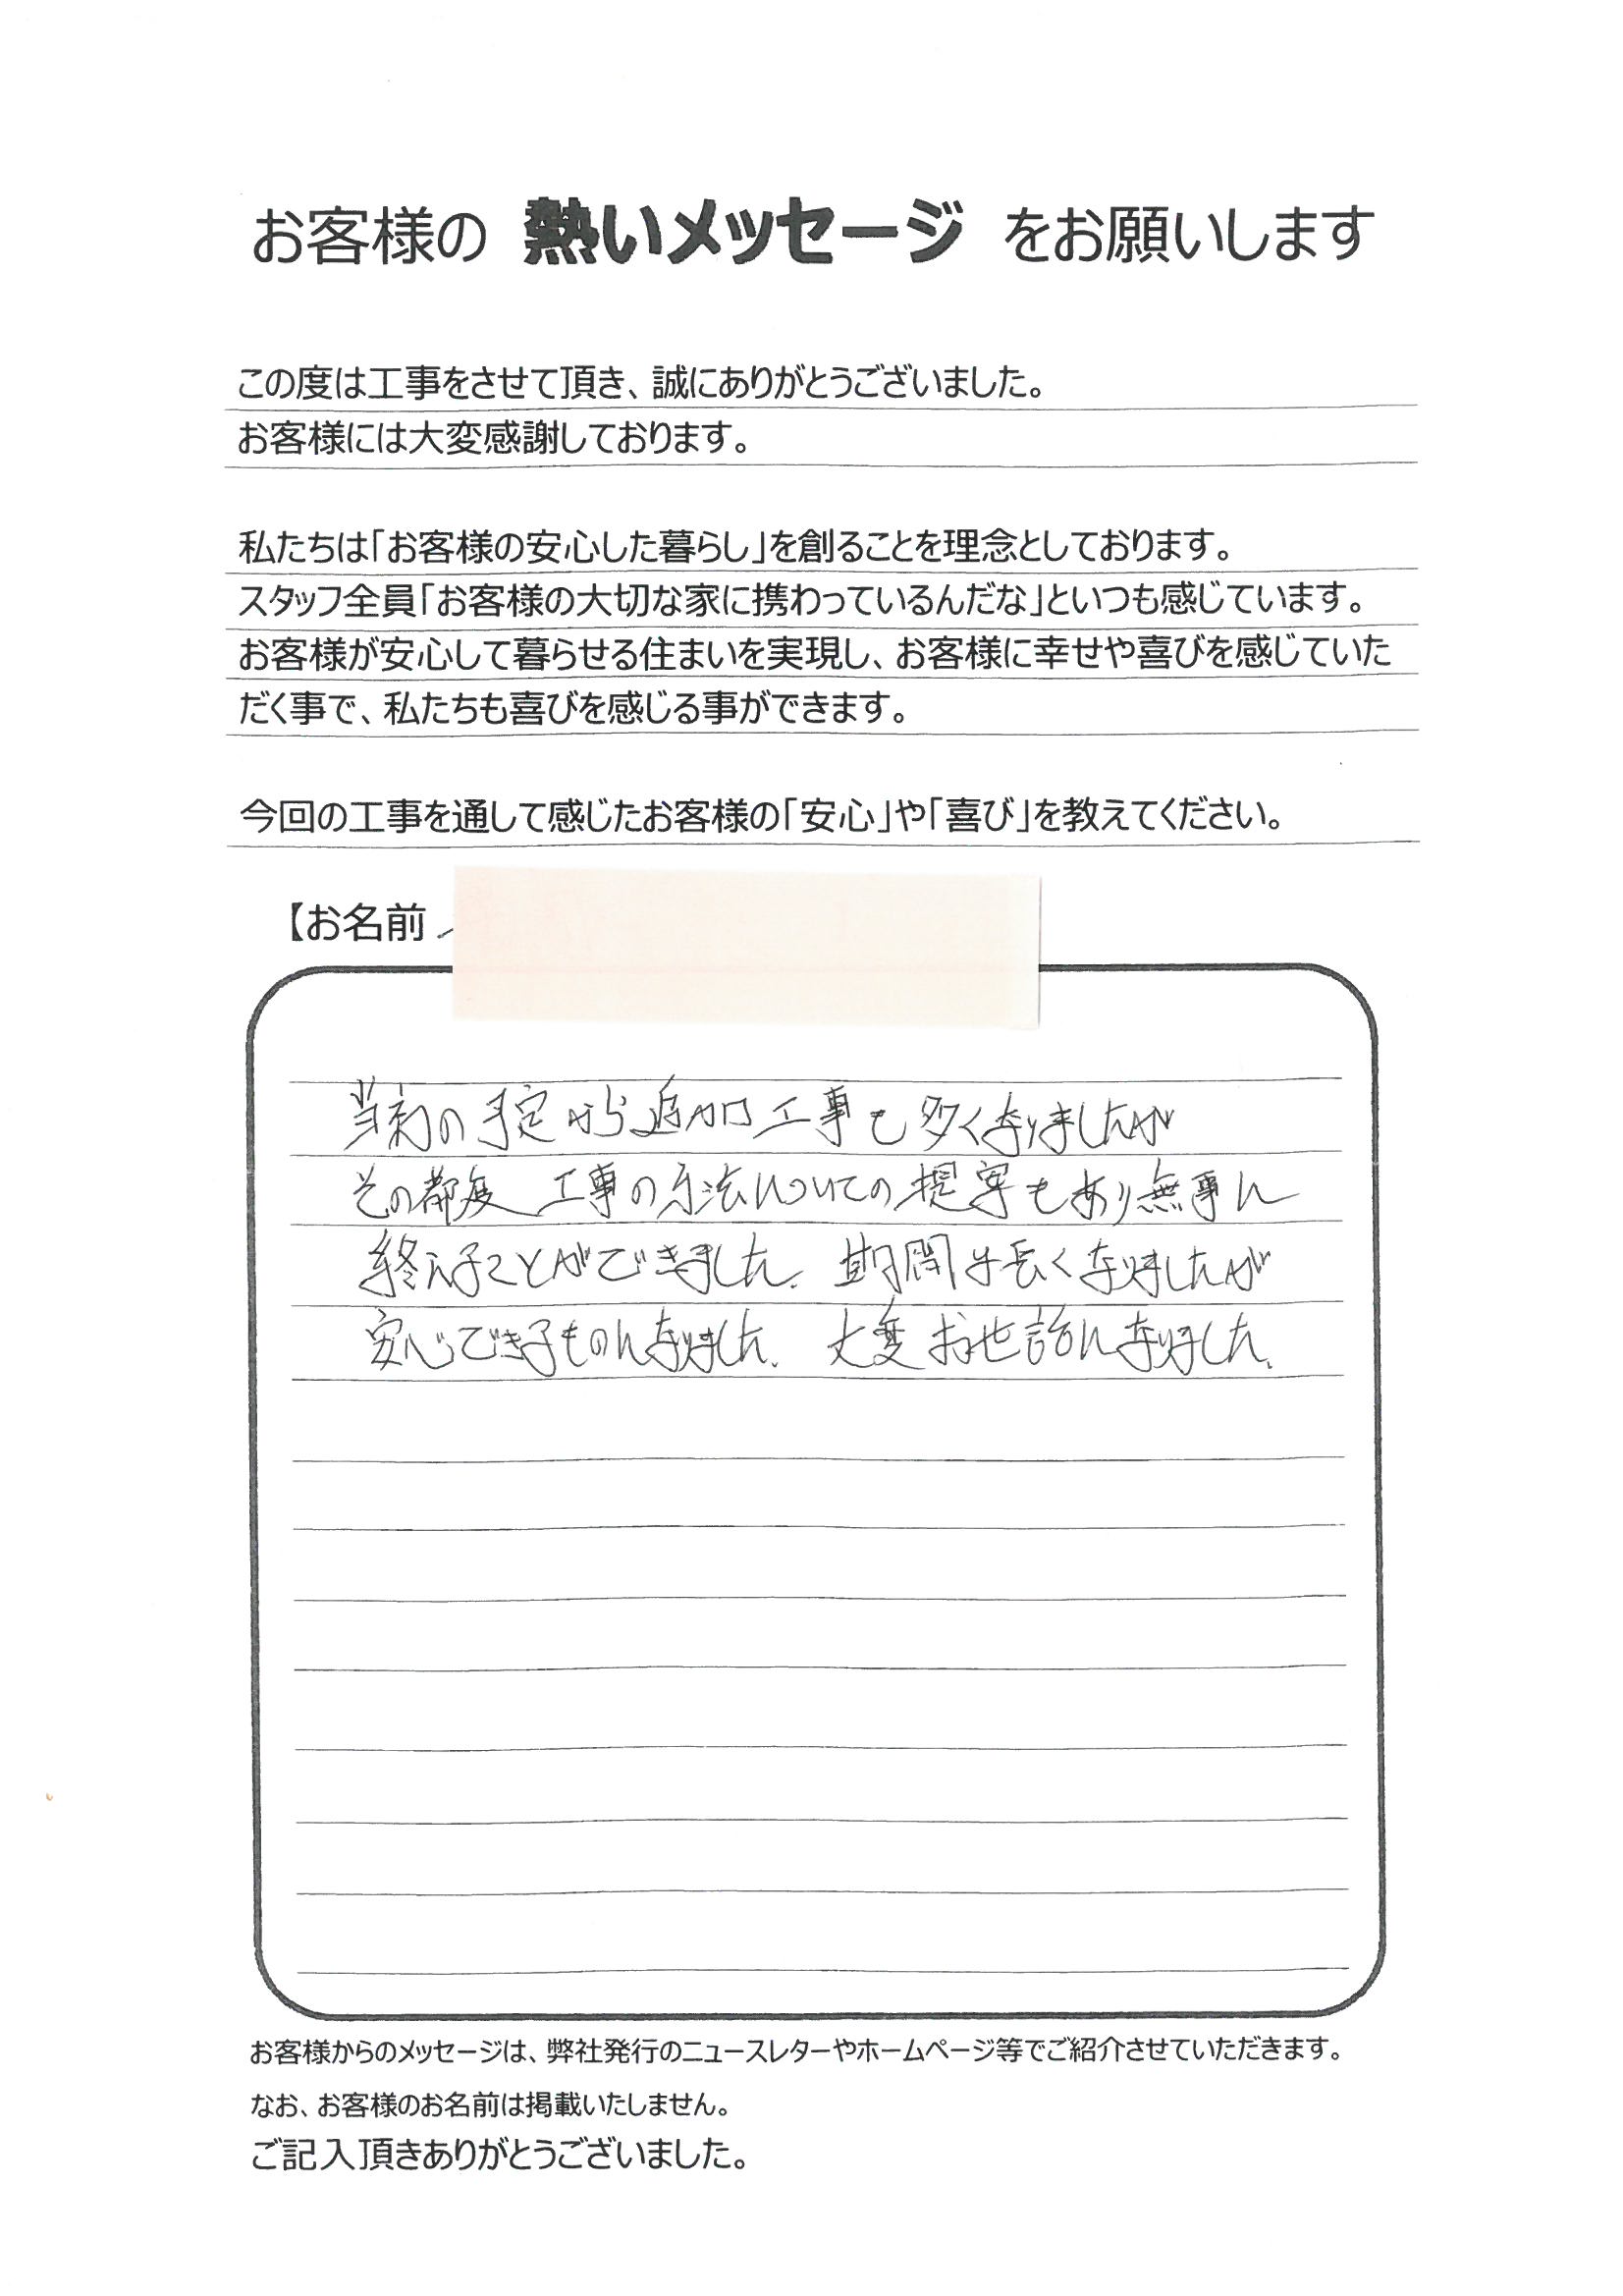 お客様の 熱いメッセージ をお願いします
この度は工事をさせて頂き、誠にありがとうございました。
お客様には大変感謝しております。
私たちは「お客様の安心した暮らし」を創ることを理念としております。
スタッフ全員「お客様の大切な家に携わっているんだな」といつも感じています。
お客様が安心して暮らせる住まいを実現し、お客様に幸せや喜びを感じていた
だく事で、私たちも喜びを感じる事ができます。
今回の工事を通して感じたお客様の「安心」や「喜び」を教えてください。
【お名前
当初の予定から追加工事も多くなりましたが
その都度 工事の方法についての提案もあり無事に
終えることができました。期間は長くなりましたが
安心できるものになりました。大変お世話になりました。
お客様からのメッセージは、弊社発行のニュースレターやホームページ等でご紹介させていただきます。
なお、お客様のお名前は掲載いたしません。
ご記入頂きありがとうございました。